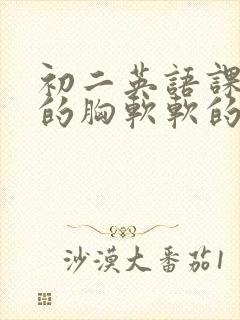 初二英語課
的胸軟軟的
沙漠大番茄1